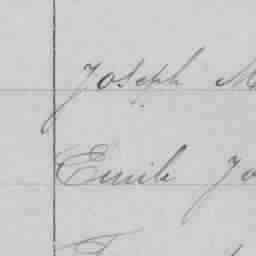 Joseph M
Emile Jo